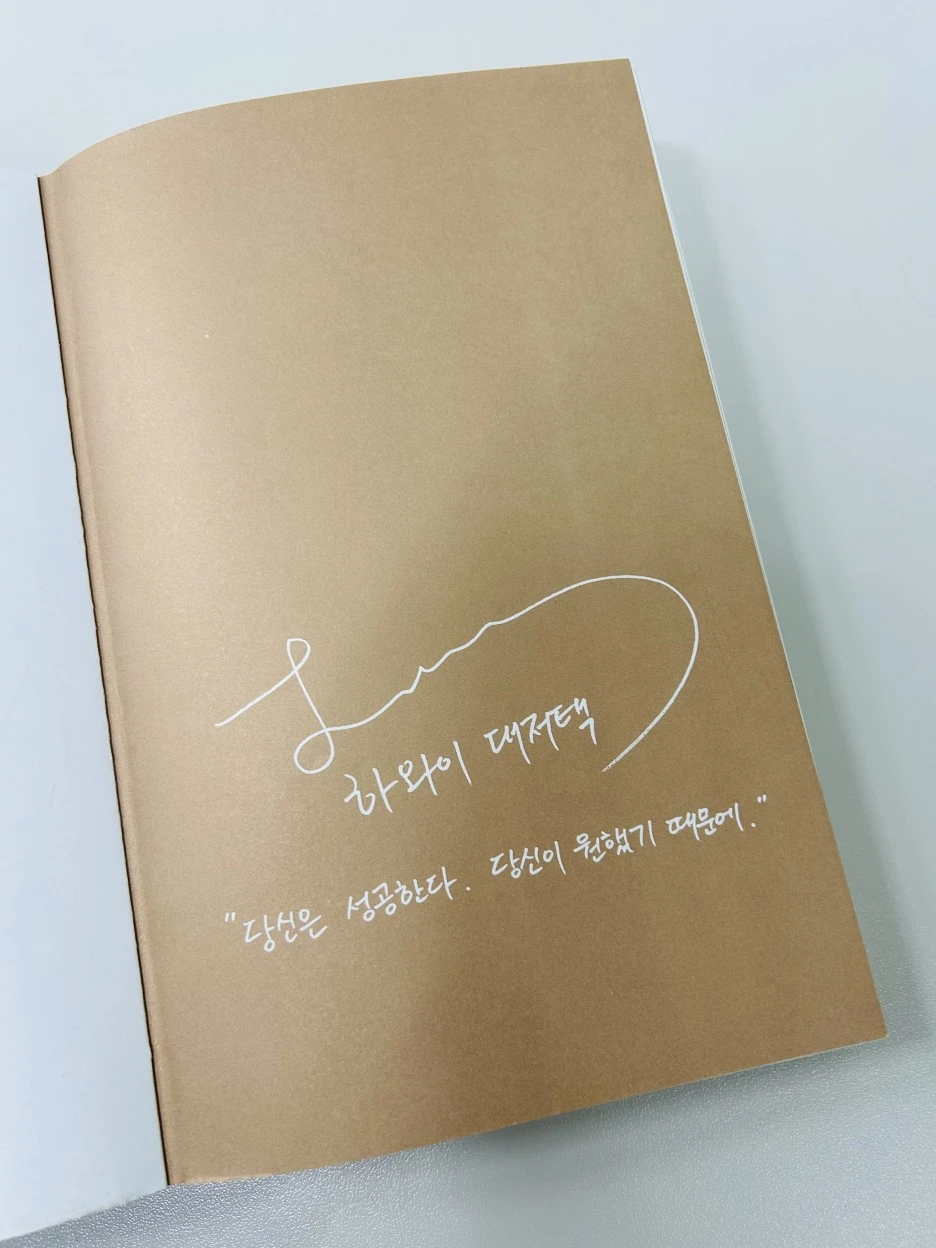 하와이 대저택
"당신은 성공한다. 당신이 원했기 때문에."